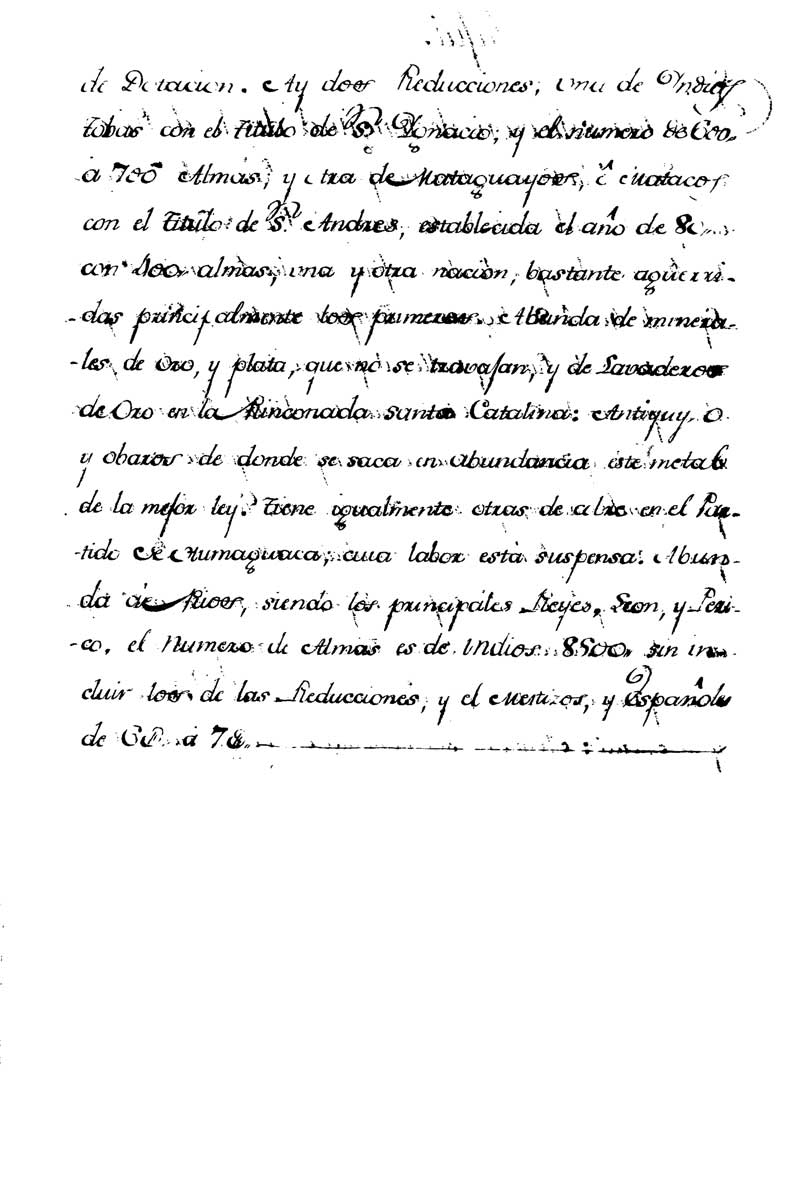 de Dotacion. Ay doos Reducciones, una de Yndios
tobas con el titulo de Sn. Ygnacio, y el numero de 600.
a 700 Almas, y otra de Mataguayos, ê
con el titulo de Sn. Andres, establecida el año de
con 400. almas, una y otra nacion, bastante aguerri-
-das principalmente loos primeros. Abunda de minera-
-les de Oro, y plata, que nó se travajan, y de Lavaderoos
de Oro en la Rinconada Santa Catalina: Antiguyo
y obaros de donde se saca en abundancia este metal
de la mejor ley. Tiene igualmente otras de albre en el Par-
-tido de Humaguaca, cuia labor está suspensa. Abun-
da de Rioos, siendo los principales Reyes, Leon, y Peri-
-co, el Numero de Almas es de Indios. 8500. sin in-
cluir loos de las Reducciones, y el Mestizos, y Españols
de a